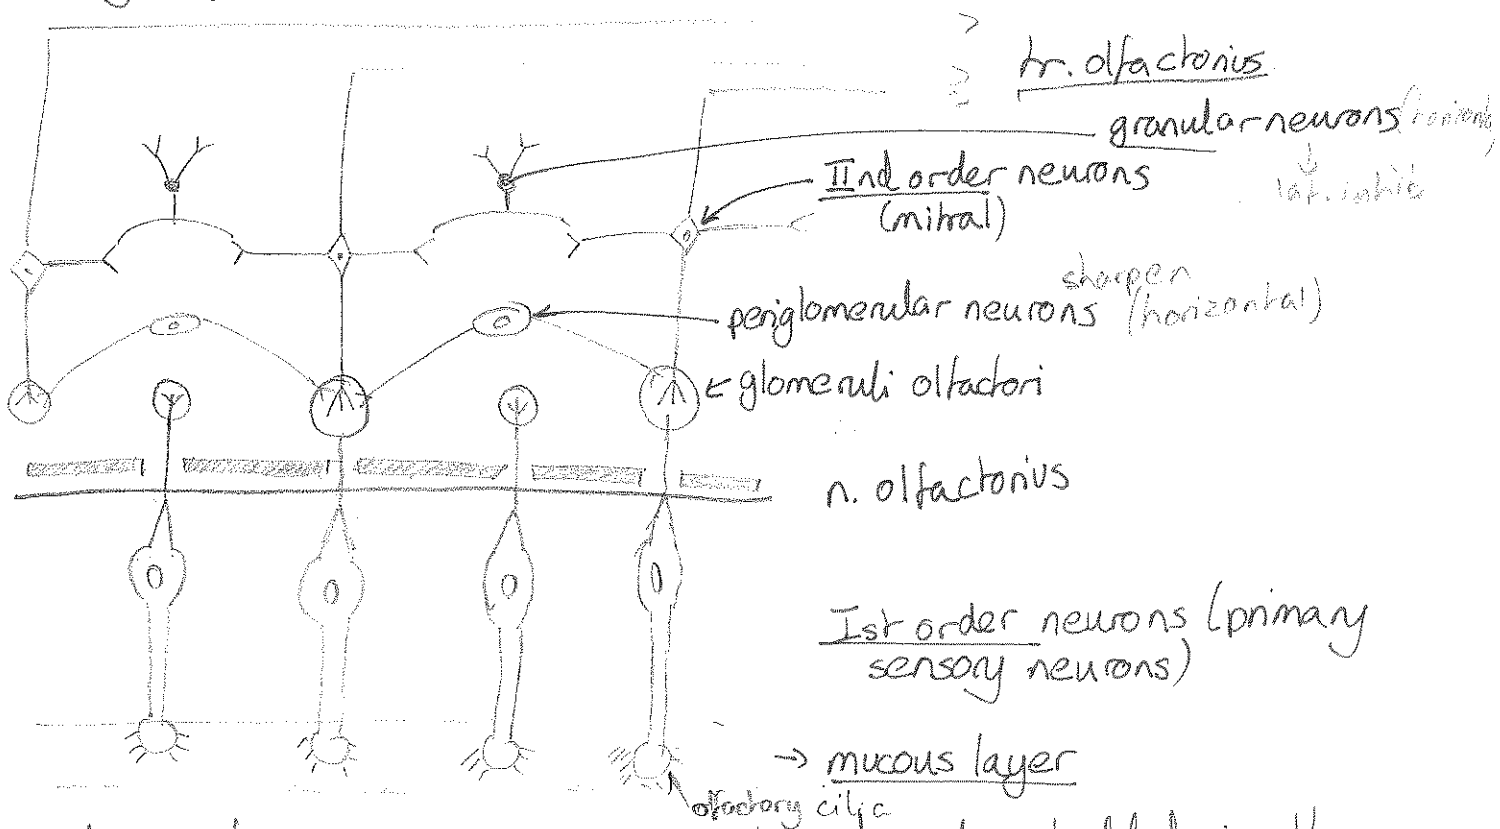 tr. olfactorius
granular neurons
lat. inhib
IInd order neurons
(mitral)
sharpen
periglomerular neurons (horizontal)
← glomeruli olfactori
n. olfactorius
Ist order neurons (primary
sensory neurons)
→ mucous layer
olfactory cilia